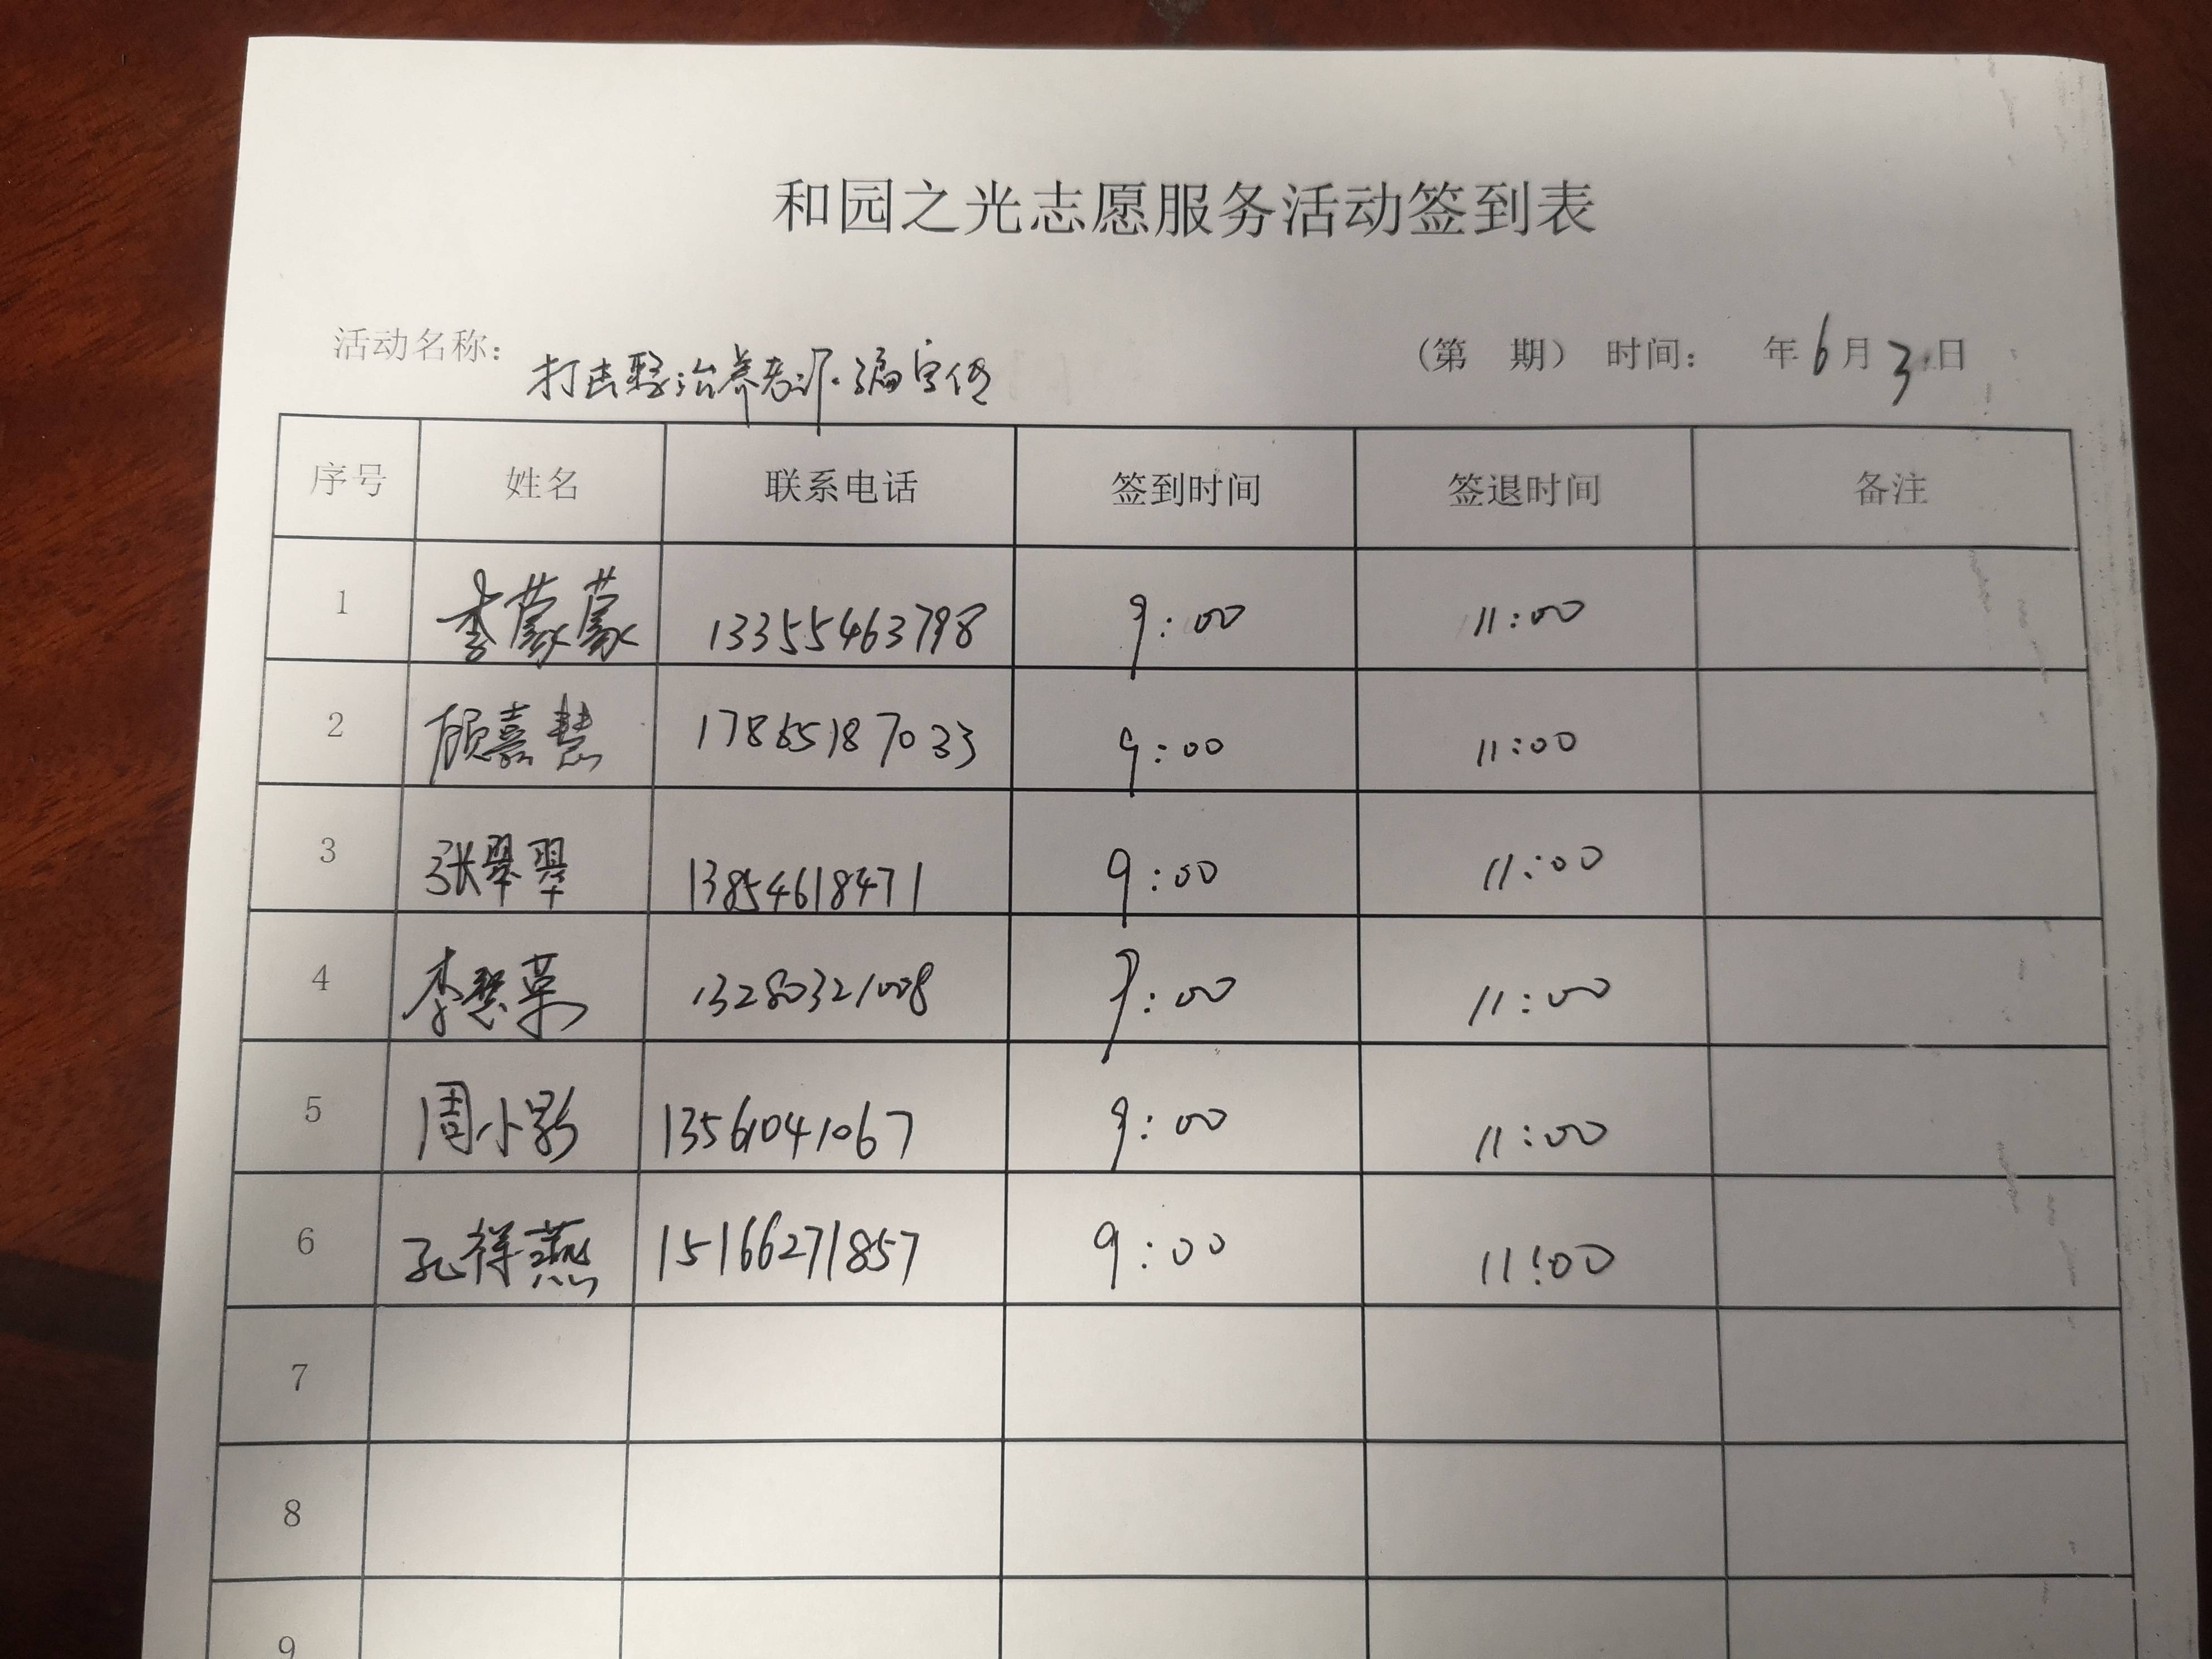 和园之光志愿服务活动签到表
活动名称: 打击整治养老诈骗宣传 (第 期) 时间: 年6月3日
序号 姓名 联系电话 签到时间 签退时间 备注
1 李蒙蒙 13355463798 9:00 11:00
2 顾嘉慧 17865187033 9:00 11:00
3 张翠翠 13854618471 9:00 11:00
4 李慧荣 13280321008 9:00 11:00
5 周小影 13561041067 9:00 11:00
6 孔祥燕 15166271857 9:00 11:00
7
8
9